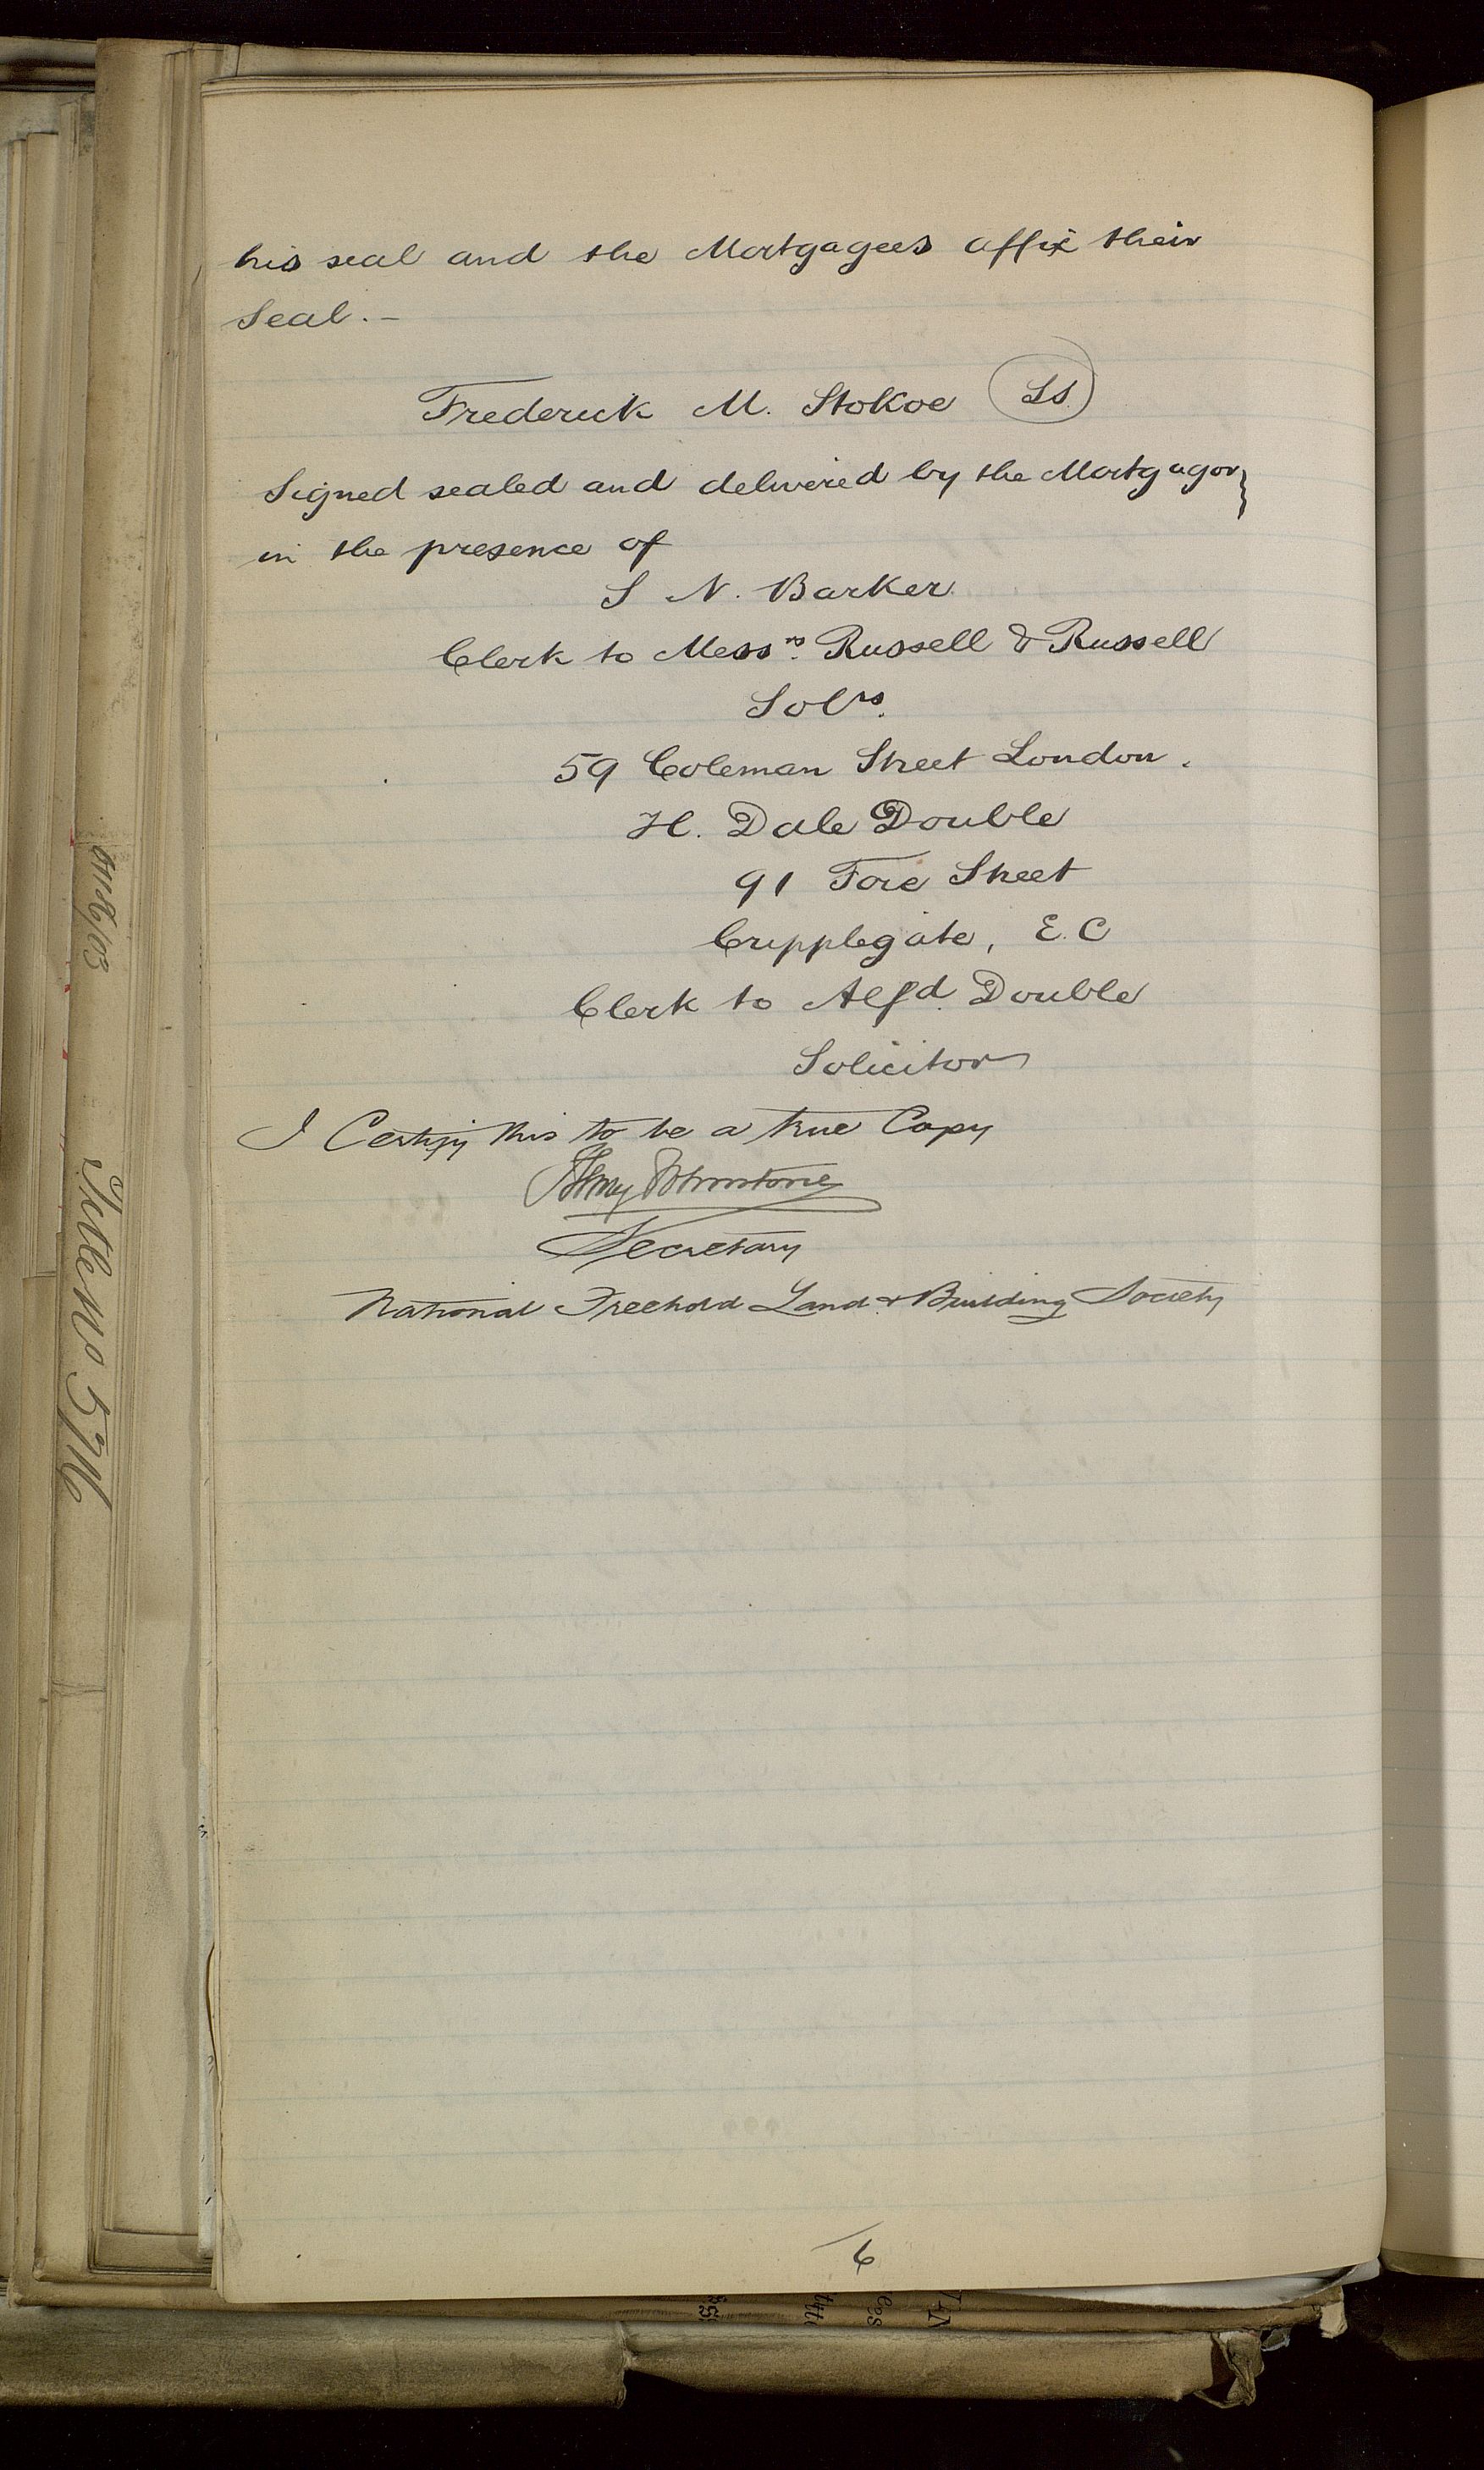 his seal and the Mortgagees affix their
Seal. –
Frederick M. Stokoe LS.
Signed sealed and delivered by the Mortgagor }
in the presence of
S N. Barker
Clerk to Messrs. Russell & Russell
Solrs.
59 Coleman Street London.
H. Dale Double
91 Fore Street
Cripplegate, E.C
Clerk to Alfd. Double
Solicitor
I Certify this to be a true Copy
Johnstone
Secretary
National Freehold Land & Building Society
6
Title no 5716